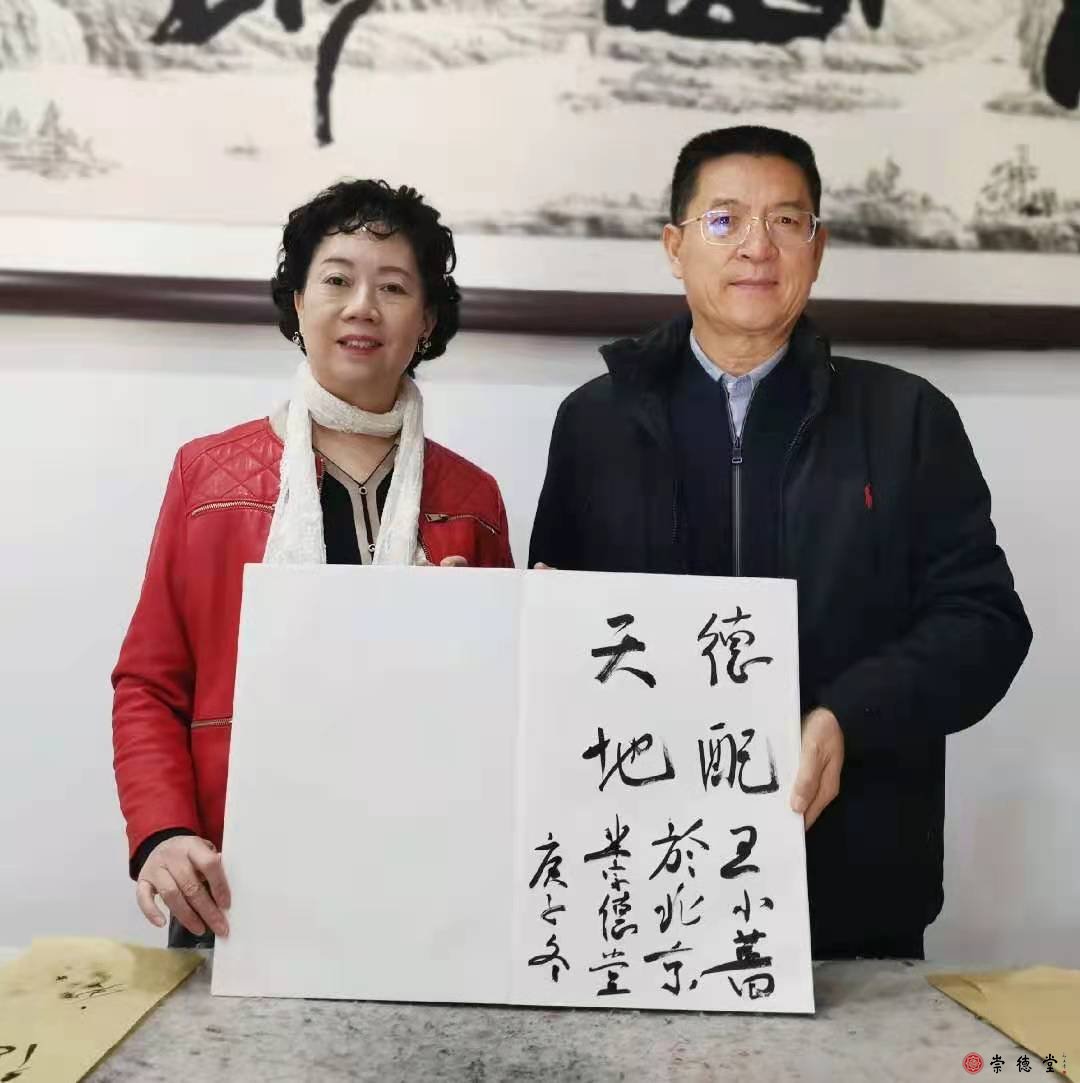 德配
天地
王小蔷
於北京
崇德堂
庚子冬
崇德堂